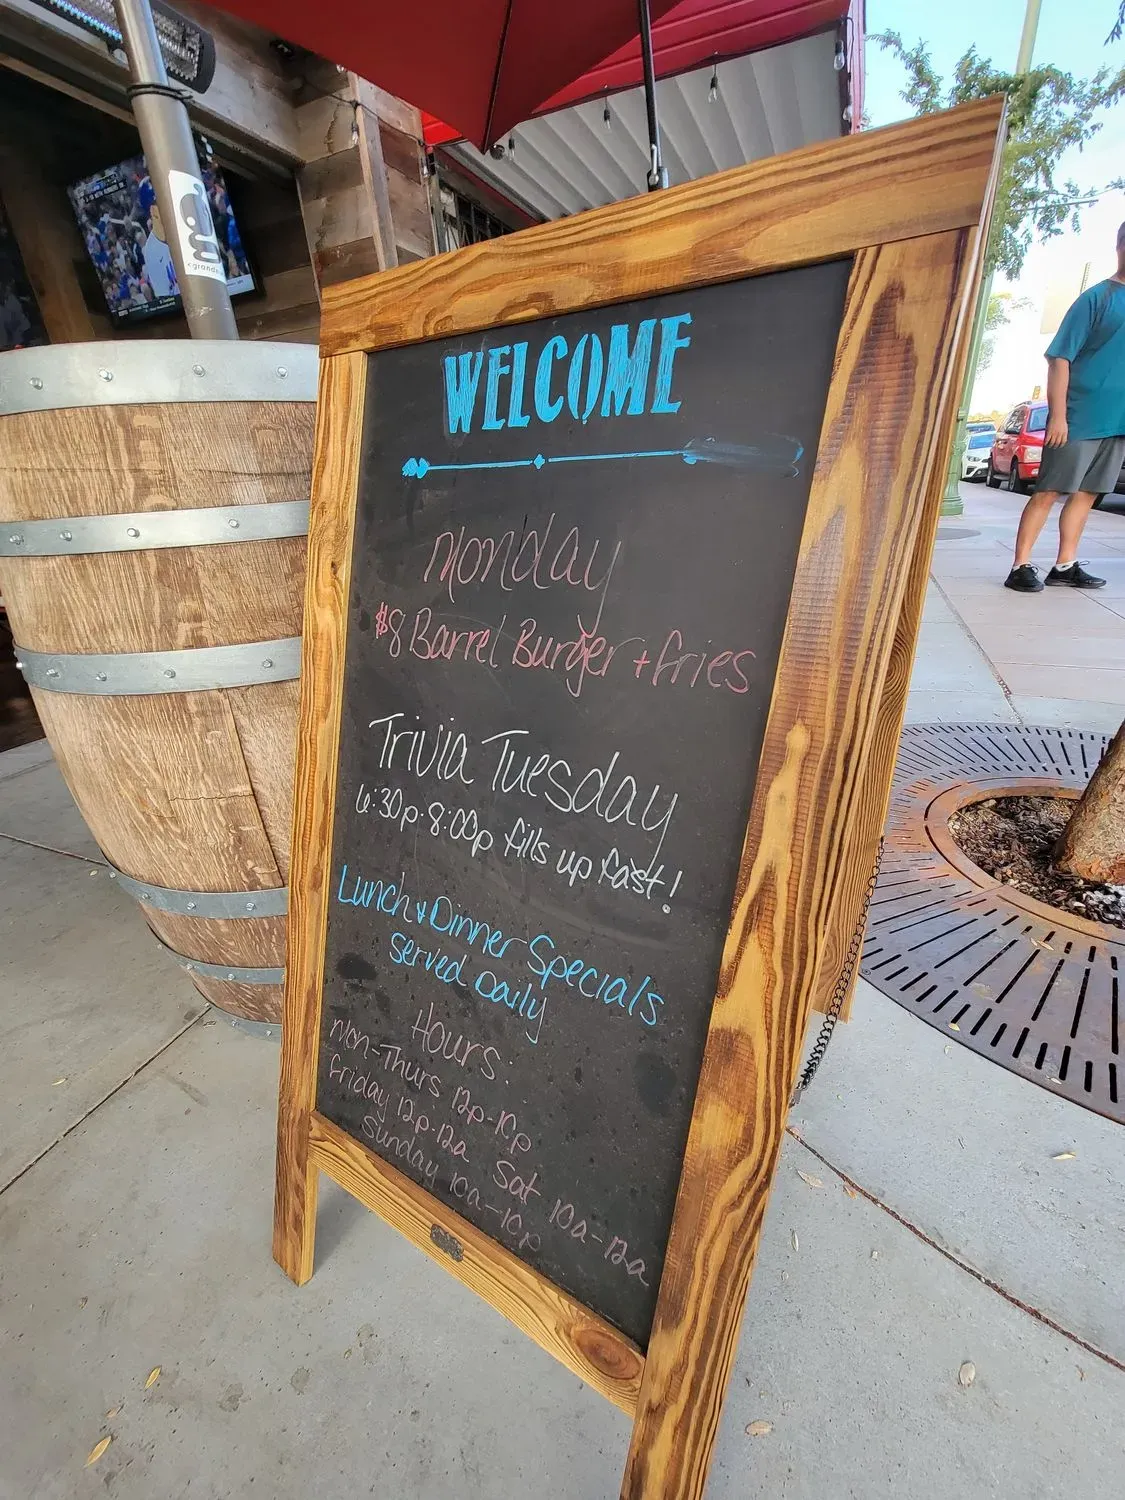 WELCOME
Monday
$8 Barrel Burger + fries
Trivia Tuesday
6:30p-8:00p fills up fast!
Lunch & Dinner Specials
Served Daily
Hours:
Mon-Thurs 12p-10p
Friday 12p-12a Sat 10a-12a
Sunday 10a-10p